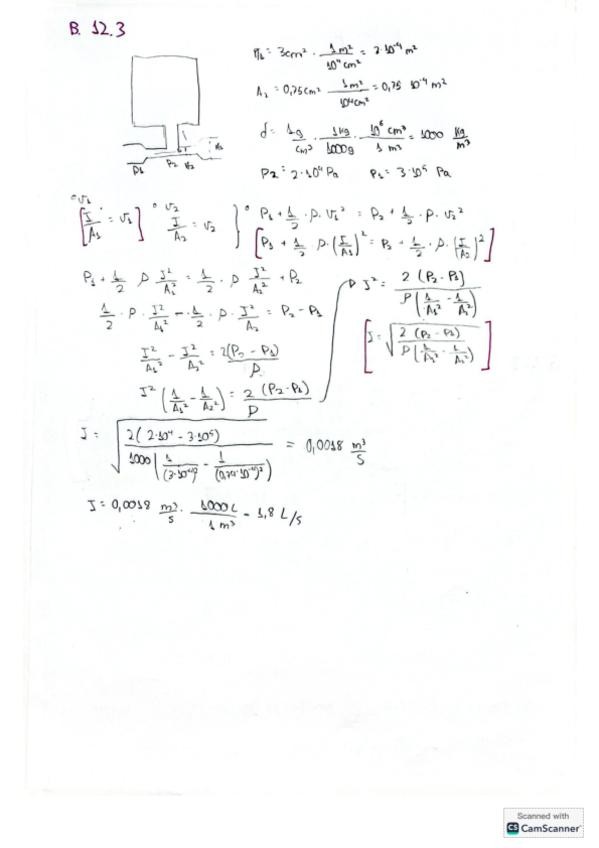 B. 12.3
A₁ = 3cm² · 1m²/10⁴cm² = 3·10⁻⁴ m²
A₂ = 0,75cm² 1m²/10⁴cm² = 0,75 10⁻⁴ m²
d = 1g/cm³ · 1kg/1000g · 10⁶ cm³/1 m³ = 1000 kg/m³
P2 = 2·10⁴ Pa P₁ = 3·10⁵ Pa
P₁ P₂ v₂
° v₁ [J/A₁ = v₁] ° v₂ J/A₂ = v₂ } ° P₁ + 1/2 · ρ · v₁² = P₂ + 1/2 · ρ · v₂²
[P₁ + 1/2 · ρ · (J/A₁)² = P₂ + 1/2 · ρ · (J/A₂)²]
P₁ + 1/2 ρ J²/A₁² = 1/2 · ρ J²/A₂² + P₂
1/2 · ρ · J²/A₁² - 1/2 · ρ · J²/A₂ = P₂ - P₁
J²/A₁² - J²/A₂² = 2(P₂ - P₁)/ρ
J² (1/A₁² - 1/A₂²) = 2 (P₂ - P₁)/ρ
J² = 2 (P₂ - P₁)/ρ(1/A₁² - 1/A₂²)
[J = √(2 (P₂ - P₁)/ρ(1/A₁² - 1/A₂²))]
J = √(2(2·10⁴ - 3·10⁵)/1000(1/(3·10⁻⁴)² - 1/(0,75·10⁻⁴)²)) = 0,0018 m³/s
J = 0,0018 m³/s · 1000L/1 m³ = 1,8 L/s
Scanned with
CS CamScanner